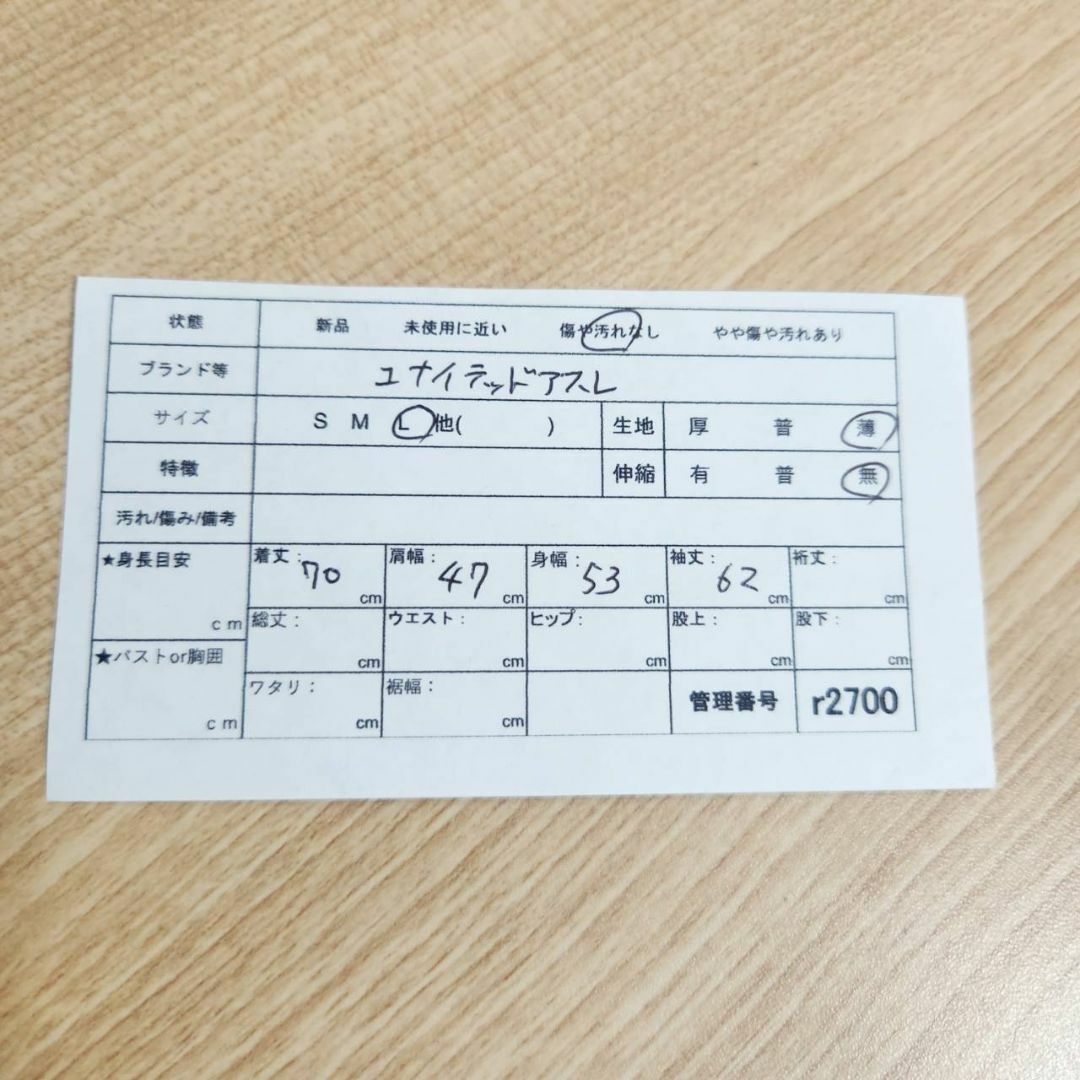 状態 新品 未使用に近い 傷や汚れなし やや傷や汚れあり
ブランド等 ユナイテッドアスレ
サイズ S M L 他( ) 生地 厚 普 薄
特徴 伸縮 有 普 無
汚れ/傷み/備考
★身長目安 cm
着丈: 70 cm 肩幅: 47 cm 身幅: 53 cm 袖丈: 62 cm 裄丈: cm
総丈: cm ウエスト: cm ヒップ: cm 股上: cm 股下: cm
★バストor胸囲 cm
ワタリ: cm 裾幅: cm 管理番号 r2700